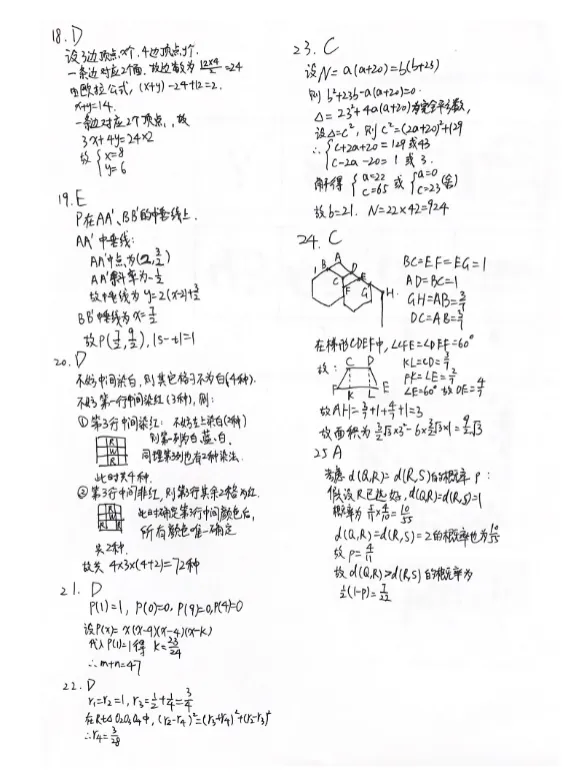 18. D
设3边顶点x个, 4边顶点y个.
一条边对应2个面, 故边数为 12×4/2 = 24
由欧拉公式, (x+y)-24+12=2.
x+y=14.
一条边对应2个顶点, 故
3x+4y=24×2
故 { x=8
y=6
19. E
P在AA'、BB'的中垂线上.
AA'中垂线:
AA'中点为(2, 3/2)
AA'斜率为-1/2
故中垂线为 y=2(x-2)+3/2
BB'中垂线为 x=7/2
故P(7/2, 9/2), |s-t|=1
20. D
不妨中间染白, 则其它格子不为白(4种).
不妨第一行中间染红(3种), 则:
①第3行中间染红: 不妨左上染白(2种)
R
W
R
则第一列为白、蓝、白.
同理第3列也有2种染法.
此时共4种.
②第3行中间非红, 则第3行其余2格为红.
R
W
R R
此时确定第3行中间颜色后,
所有颜色唯一确定
共2种.
故共 4×3×(4+2)=72种
21. D
P(1)=1, P(0)=0, P(9)=0, P(4)=0
设P(x)= x(x-9)(x-4)(x-k)
代入P(1)=1得 k=23/24
∴m+n=47
22. D
r₁=r₂=1, r₃=1/2+1/4=3/4
在Rt△O₂O₃O₄中, (r₂-r₄)²=(r₃+r₄)²+(r₂-r₃)²
∴r₄=3/28
23. C
设N=a(a+20)=b(b+23)
则 b²+23b-a(a+20)=0.
△=23²+4a(a+20)为完全平方数,
设△=c², 则 c²=(2a+20)²+129
∴ { c+2a+20=129 或 43
c-2a-20=1 或 3.
解得 { a=22
c=65 或 { a=0
c=23 (舍)
故b=21. N=22×42=924
24. C
A
B
I
C
D
E
F
G
H
BC=EF=EG=1
AD=BC=1
GH=AB=3/7
DC=AB=3/7
在梯形CDEF中, ∠CFE=∠DEF=60°
故:
C D
F K L E
KL=CD=3/7
FK=LE=2/7
∠E=60° 故DE=4/7
故AH=3/7+1+4/7+1=3
故面积为 3/2√3×3²-6×3/2√3×1=9/2√3
25 A
考虑 d(Q,R)=d(R,S)的概率 P:
假设R已选好, d(Q,R)=d(R,S)=1
概率为 5/11×4/10=10/55
d(Q,R)=d(R,S)=2的概率也为10/55
故 P=4/11
故 d(Q,R)>d(R,S)的概率为
1/2(1-P)=7/22